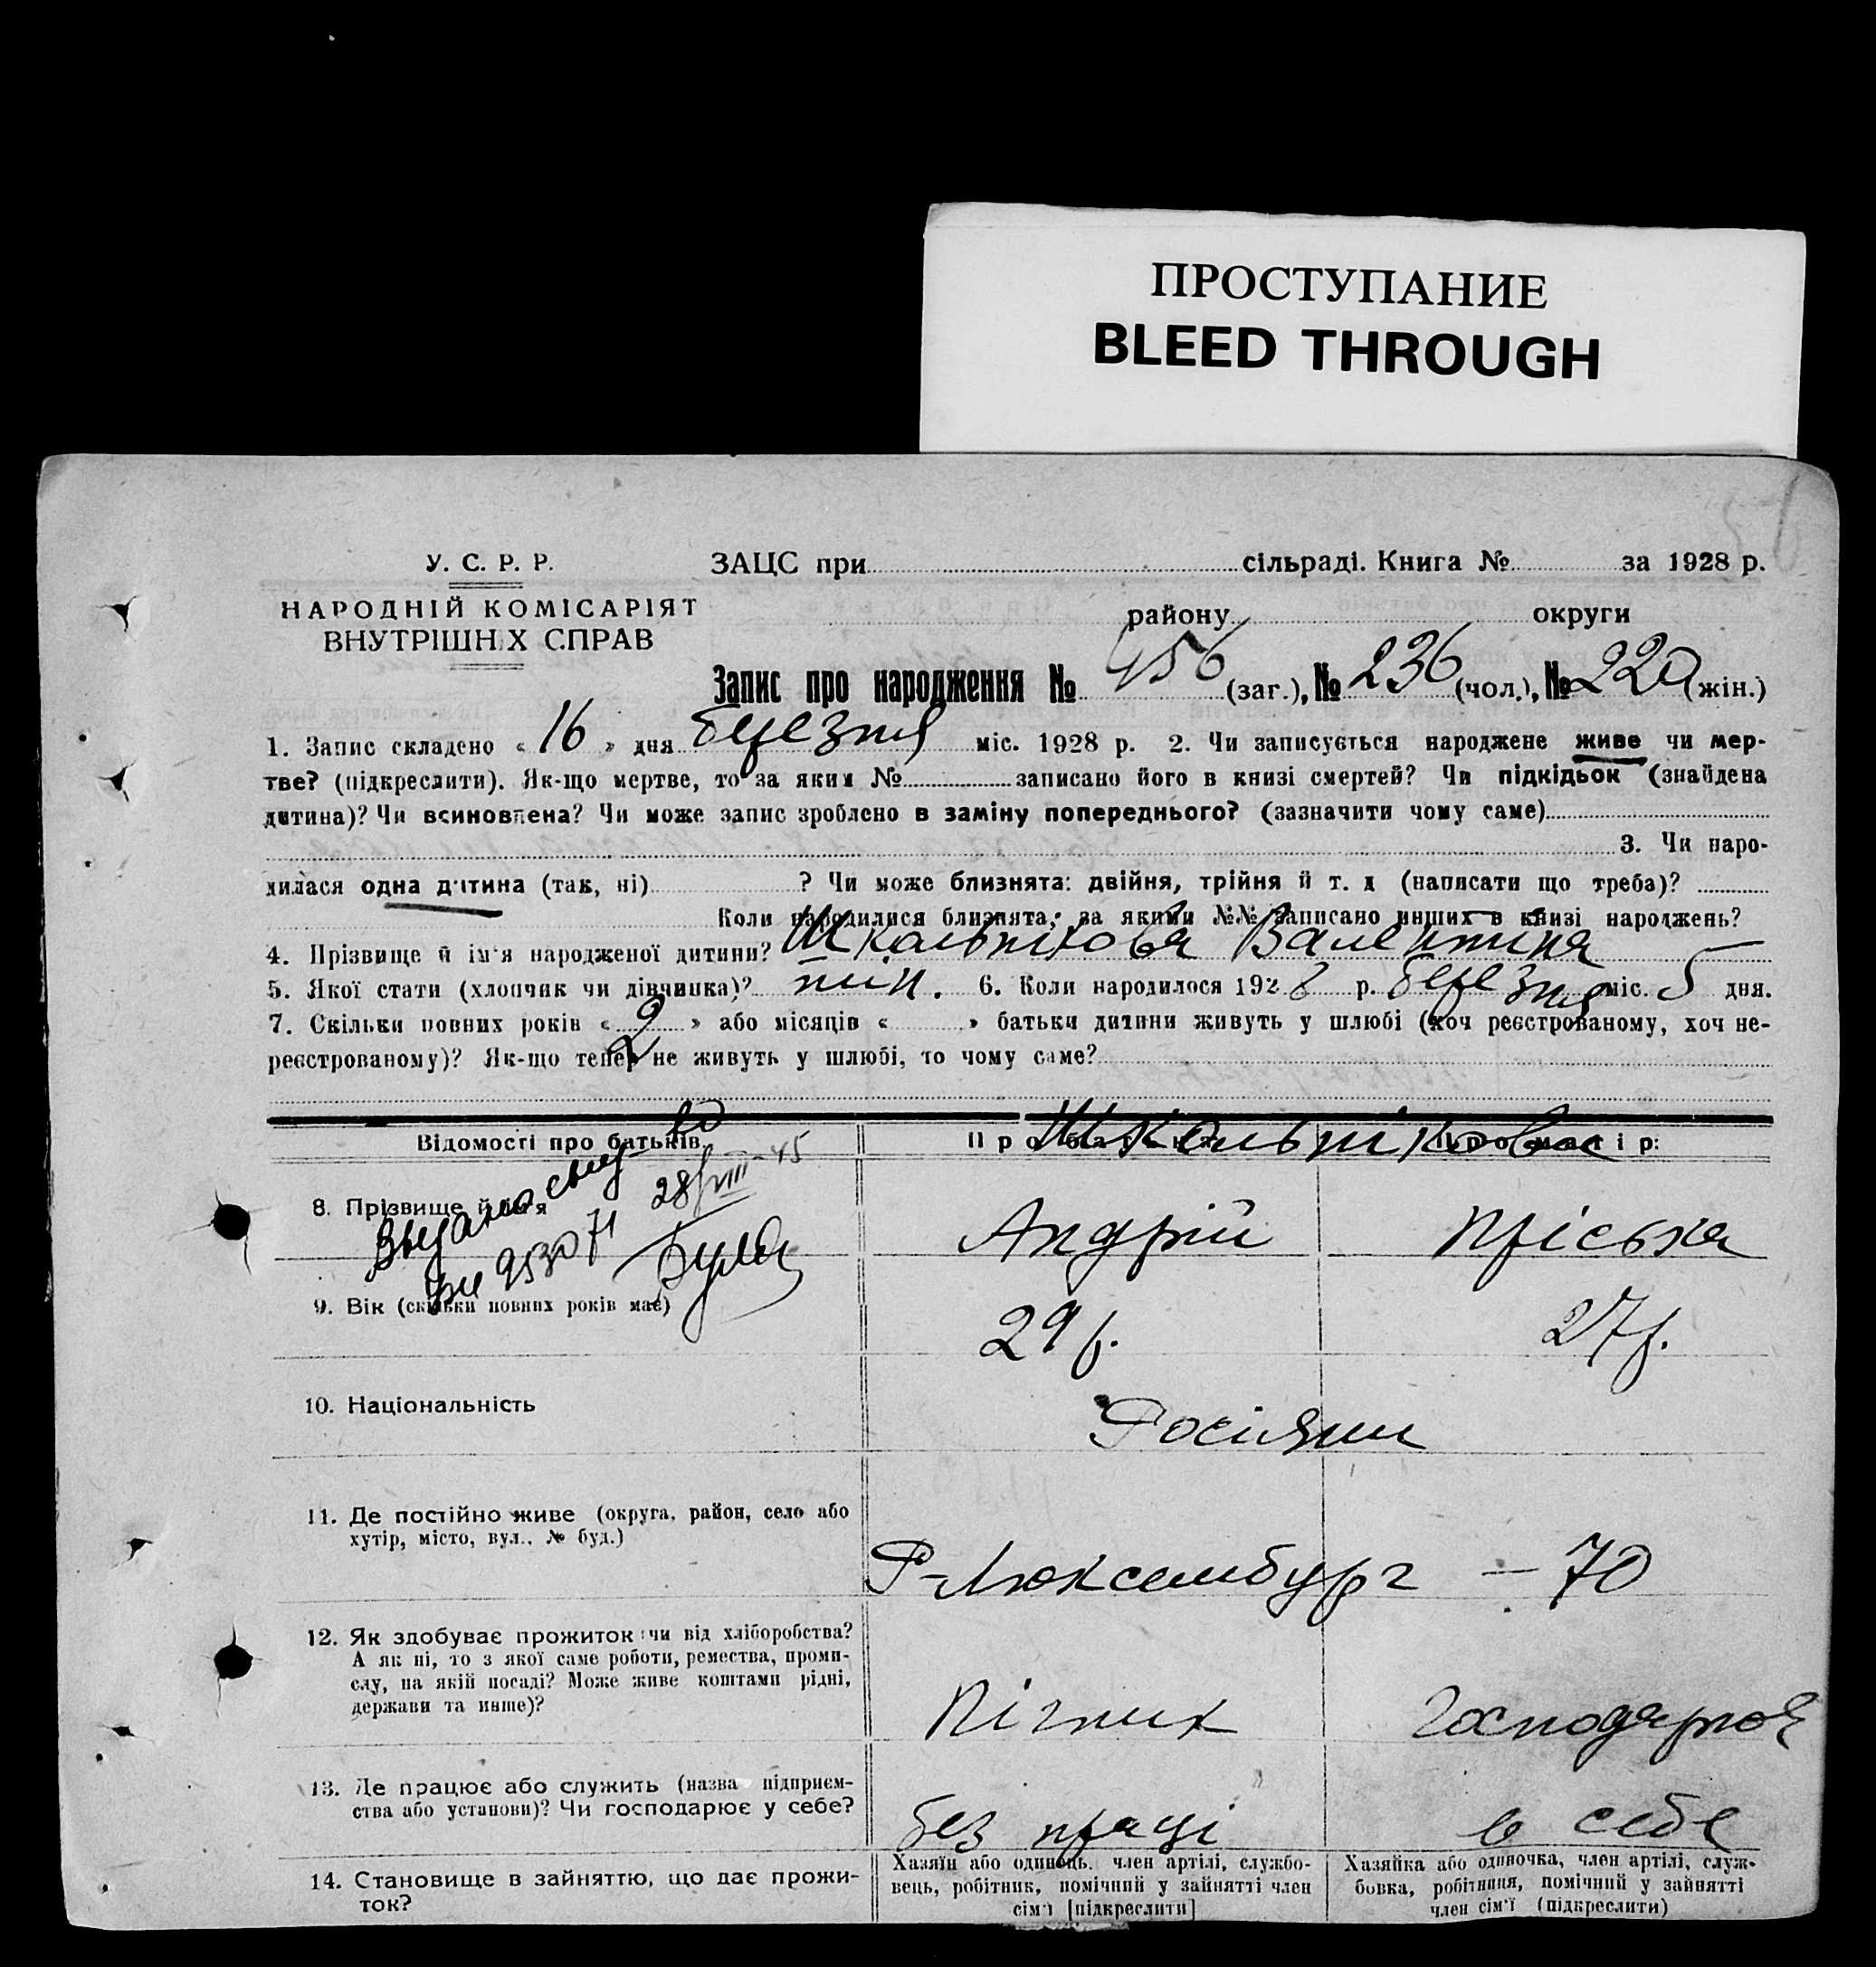 ПРОСТУПАНИЕ
BLEED THROUGH
У. С. Р. Р.
НАРОДНІЙ КОМІСАРІЯТ
ВНУТРІШНІХ СПРАВ
ЗАЦС при сільраді. Книга № за 1928 р.
району округи
Запис про народження № 456 (заг.), № 236 (чол.), № 220 (жін.)
1. Запис складено « 16 » дня березня міс. 1928 р. 2. Чи записується народжене живе чи мер-
тве? (підкреслити). Як-що мертве, то за яким № записано його в книзі смертей? Чи підкідьок (знайдена
дитина)? Чи всиновлена? Чи може запис зроблено в заміну попереднього? (зазначити чому саме)
3. Чи наро-
дилася одна дитина (так, ні) ? Чи може близнята: двійня, трійня й т. д (написати що треба)?
Коли народилися близнята, за якими №№ записано инших в книзі народжень?
4. Прізвище й ім'я народженої дитини? Школьнікова Валентина
5. Якої статі (хлопчик чи дівчинка)? жін. 6. Коли народилося 1928 р. березня міс. 5 дня.
7. Скільки повних років « 9 » або місяців « » батьки дитини живуть у шлюбі (хоч реєстрованому, хоч не-
реєстрованому)? Як-що тепер не живуть у шлюбі, то чому саме?
Відомості про батьків Про батька Про матір:
Школьнікови
28/VIII-45
8. Прізвище й ім'я Андрій Пріська
9. Вік (скільки повних років має) 29 р. 27 р.
10. Національність Росіяни
11. Де постійно живе (округа, район, село або
хутір, місто, вул., № буд.)
Р-Люксембург – 70
12. Як здобуває прожиток: чи від хліборобства?
А як ні, то з якої саме роботи, ремества, проми-
слу, на якій посаді? Може живе коштами рідні,
держави та инше)?
Пічник Господарює
13. Де працює або служить (назва підприєм-
ства або установи)? Чи господарює у себе?
без праці в себе
14. Становище в зайняттю, що дає прожи-
ток?
Хазяїн або одинець, член артілі, службо-
вець, робітник, помічний у зайнятті член
сім'ї [підкреслити]
Хазяйка або одиночка, член артілі, служ-
бовка, робітниця, помічний у зайнятті
член сім'ї (підкреслити)